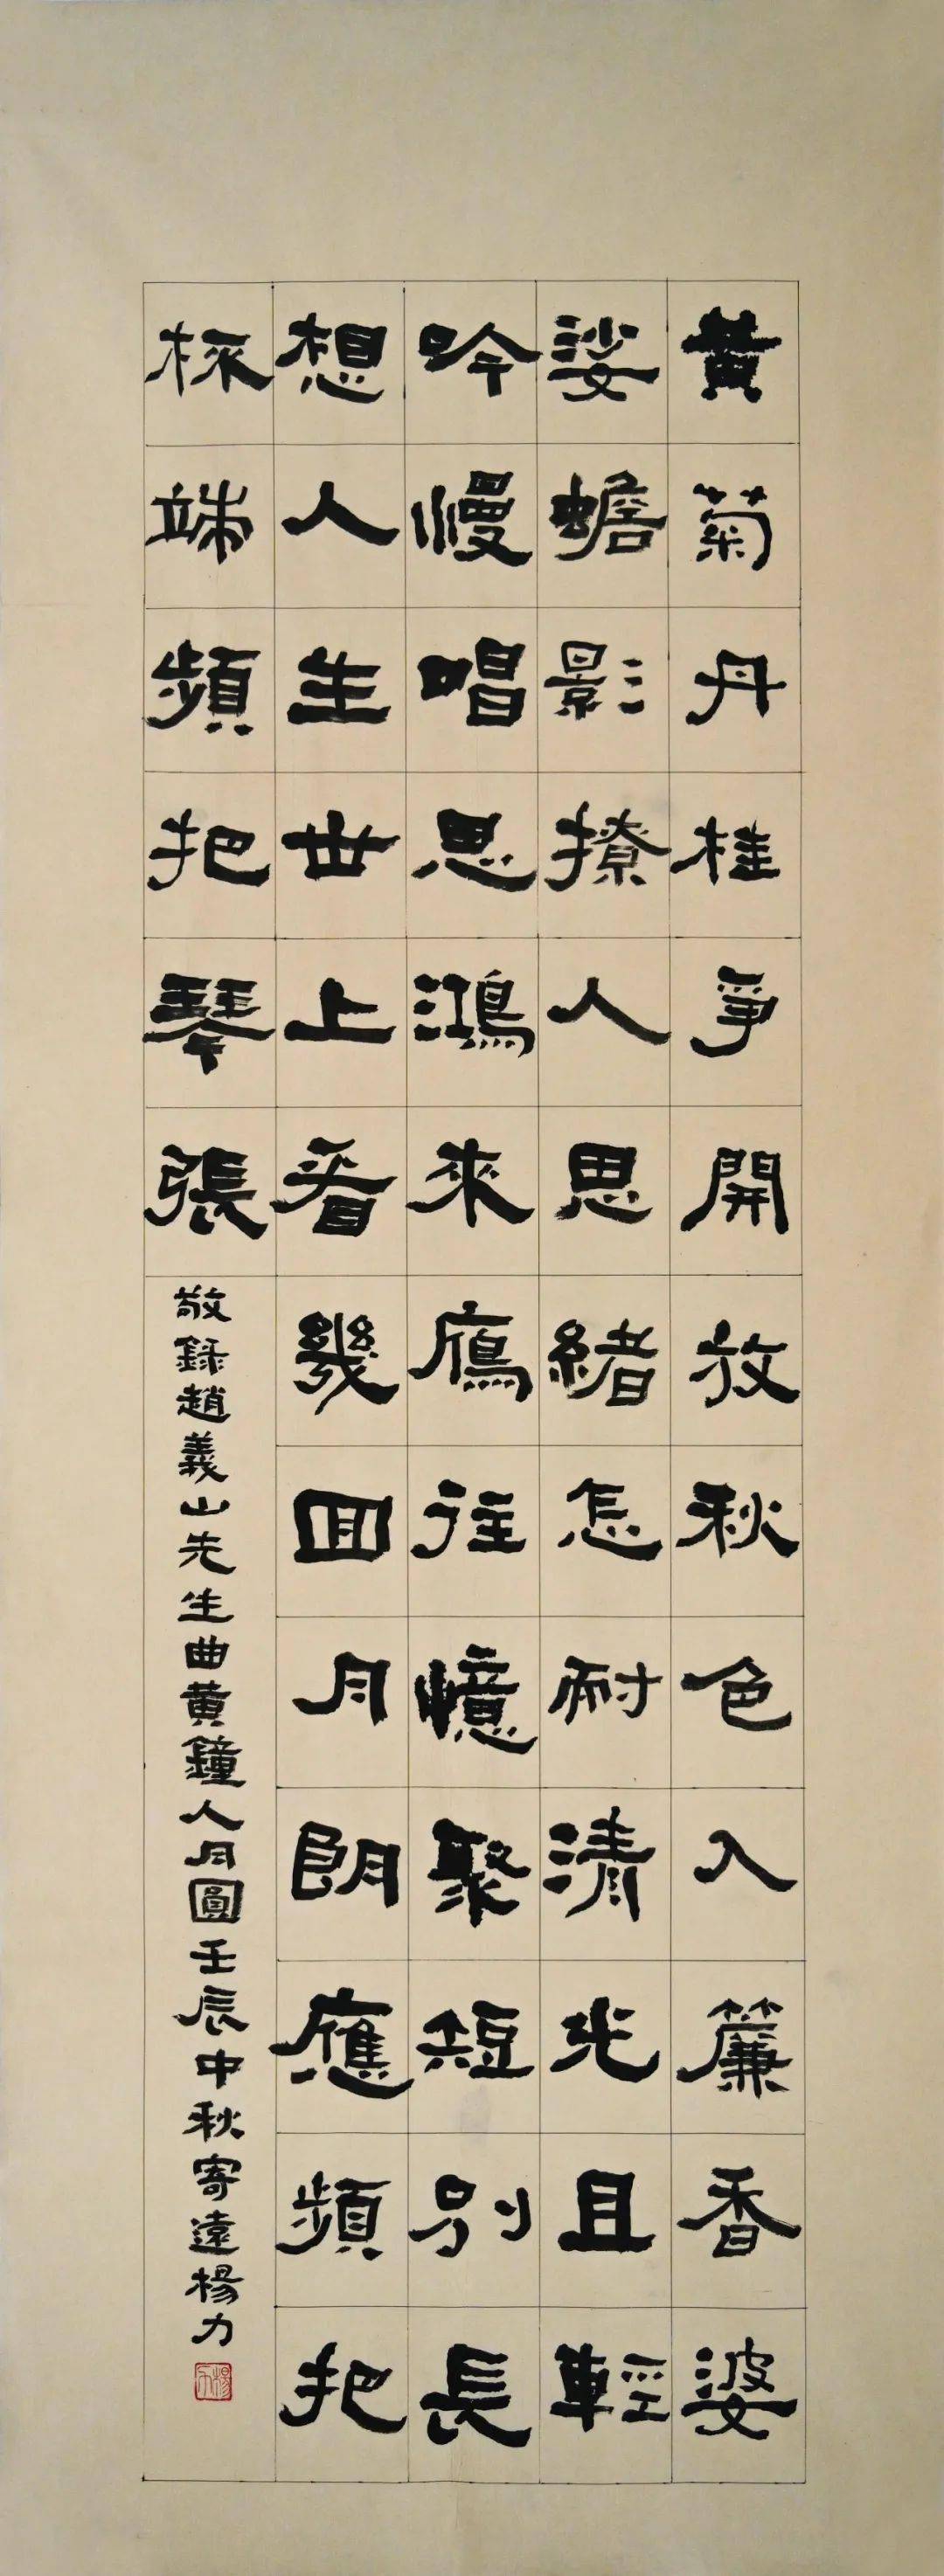 黃菊丹桂爭開放秋色入簾香婆
娑蟾影撩人思緒怎耐清光且輕
吟慢唱思鴻來鴈往憶聚短別長
想人生世上看幾回月朗應頻把
杯端頻把琴張
敬錄趙義山先生曲黃鐘人月圓壬辰中秋寄遠楊力
楊力